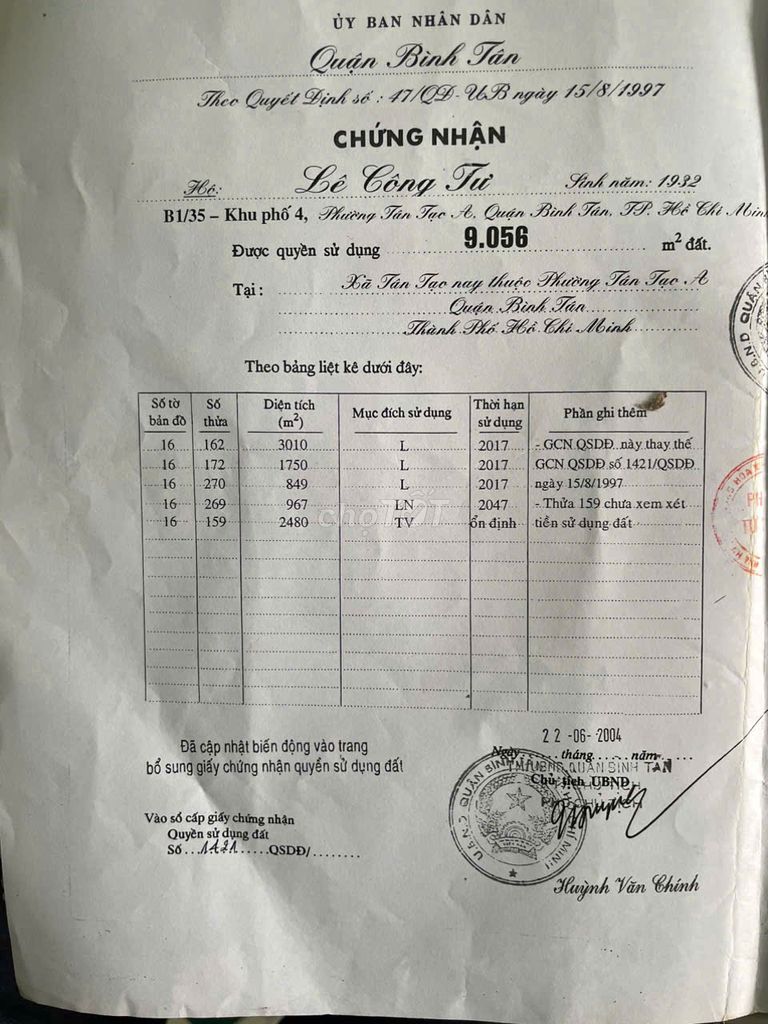 ỦY BAN NHÂN DÂN
Quận Bình Tân
Theo Quyết Định số : 47/QĐ-UB ngày 15/8/1997
CHỨNG NHẬN
Hộ: Lê Công Tư Sinh năm: 1932
B1/35 – Khu phố 4, Phường Tân Tạo A, Quận Bình Tân, TP. Hồ Chí Minh
Được quyền sử dụng 9.056 m² đất.
Tại : Xã Tân Tạo nay thuộc Phường Tân Tạo A
Quận Bình Tân
Thành Phố Hồ Chí Minh
Theo bảng liệt kê dưới đây:
Số tờ bản đồ Số thửa Diện tích (m²) Mục đích sử dụng Thời hạn sử dụng Phần ghi thêm
16 162 3010 L 2017 - GCN QSDĐ này thay thế
16 172 1750 L 2017 GCN QSDĐ số 1421/QSDĐ
16 270 849 L 2017 ngày 15/8/1997
16 269 967 LN 2047 - Thửa 159 chưa xem xét
16 159 2480 TV ổn định tiền sử dụng đất
chợTỐT
Đã cập nhật biến động vào trang
bổ sung giấy chứng nhận quyền sử dụng đất
Vào sổ cấp giấy chứng nhận
Quyền sử dụng đất
Số...1421......QSDĐ/........
22-06-2004
Ngày......tháng......năm......
TM.UBND QUẬN BÌNH TÂN
Chủ tịch UBND
PHÓ CHỦ TỊCH
U.B.N.D QUẬN BÌNH
Huỳnh Văn Chính